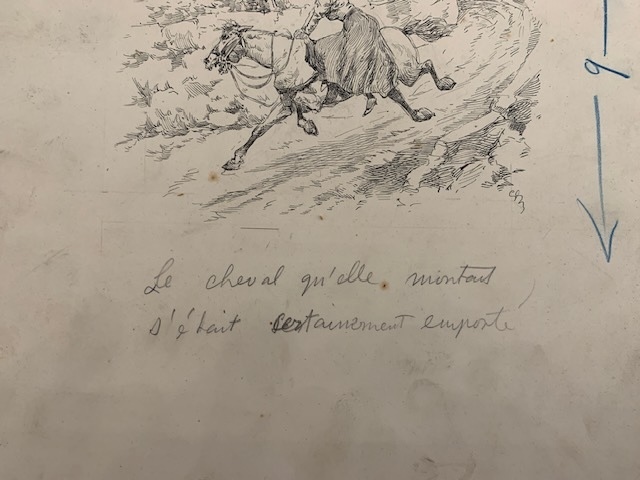 Le cheval qu'elle montait,
s'était certainement emporté
9